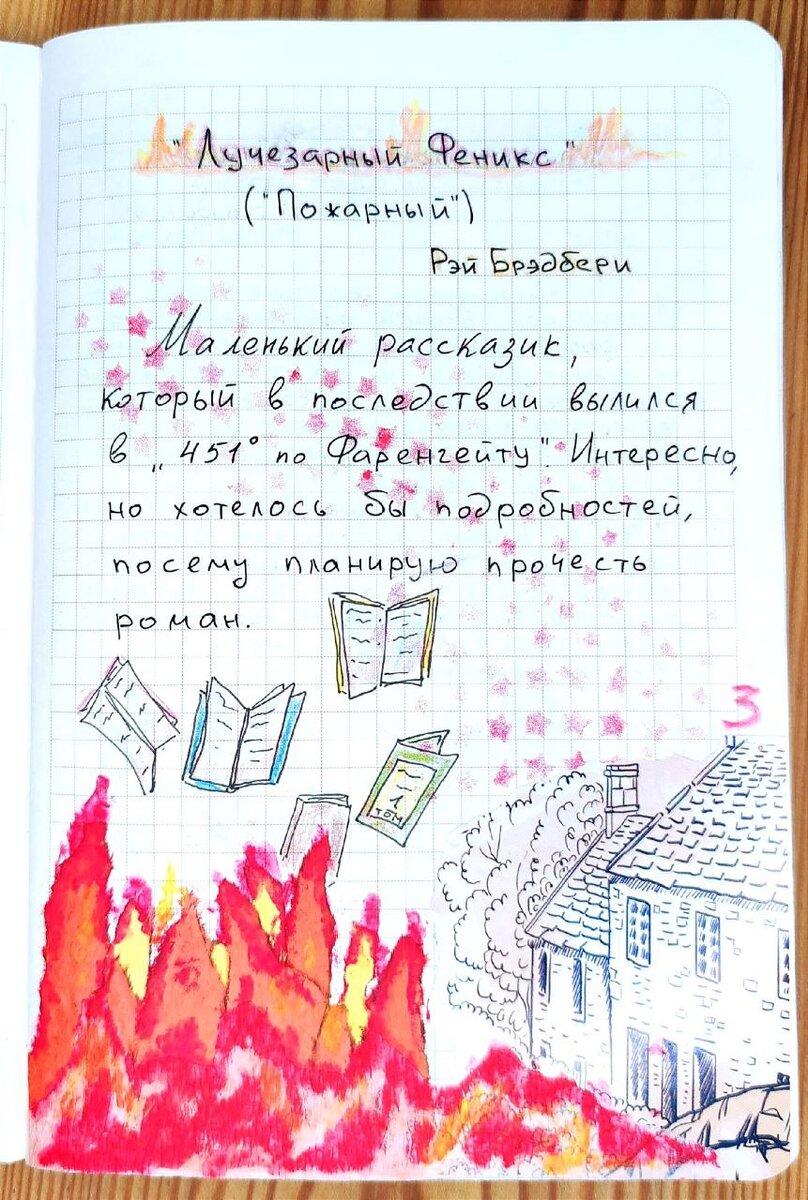 "Лучезарный Феникс"
("Пожарный")
Рэй Брэдбери
Маленький рассказик,
который в последствии вылился
в „451° по Фаренгейту". Интересно,
но хотелось бы подробностей,
посему планирую прочесть
роман.
3
1
ТОМ